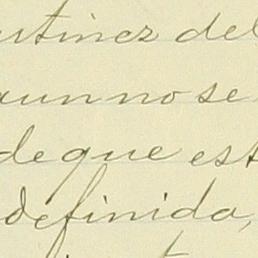 rtinez del
aun no se
de que est
definida,